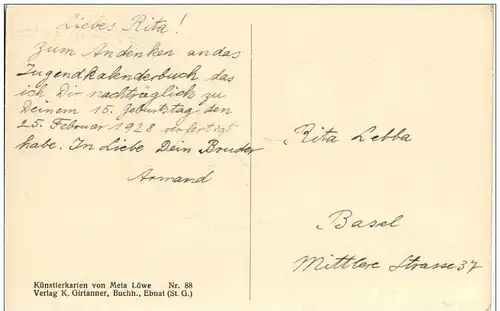 Liebes Rita!
Zum Andenken an das
Jugendkalenderbuch das
ich Dir nachträglich zu
Deinem 15. Geburtstag den
25. Februar 1928 verfertigt
habe. In Liebe Dein Bruder
Armand
Rita Lebba
Basel
Mittlere Strasse 37
Künstlerkarten von Meta Löwe Nr. 88
Verlag K. Girtanner, Buchh., Ebnat (St. G.)